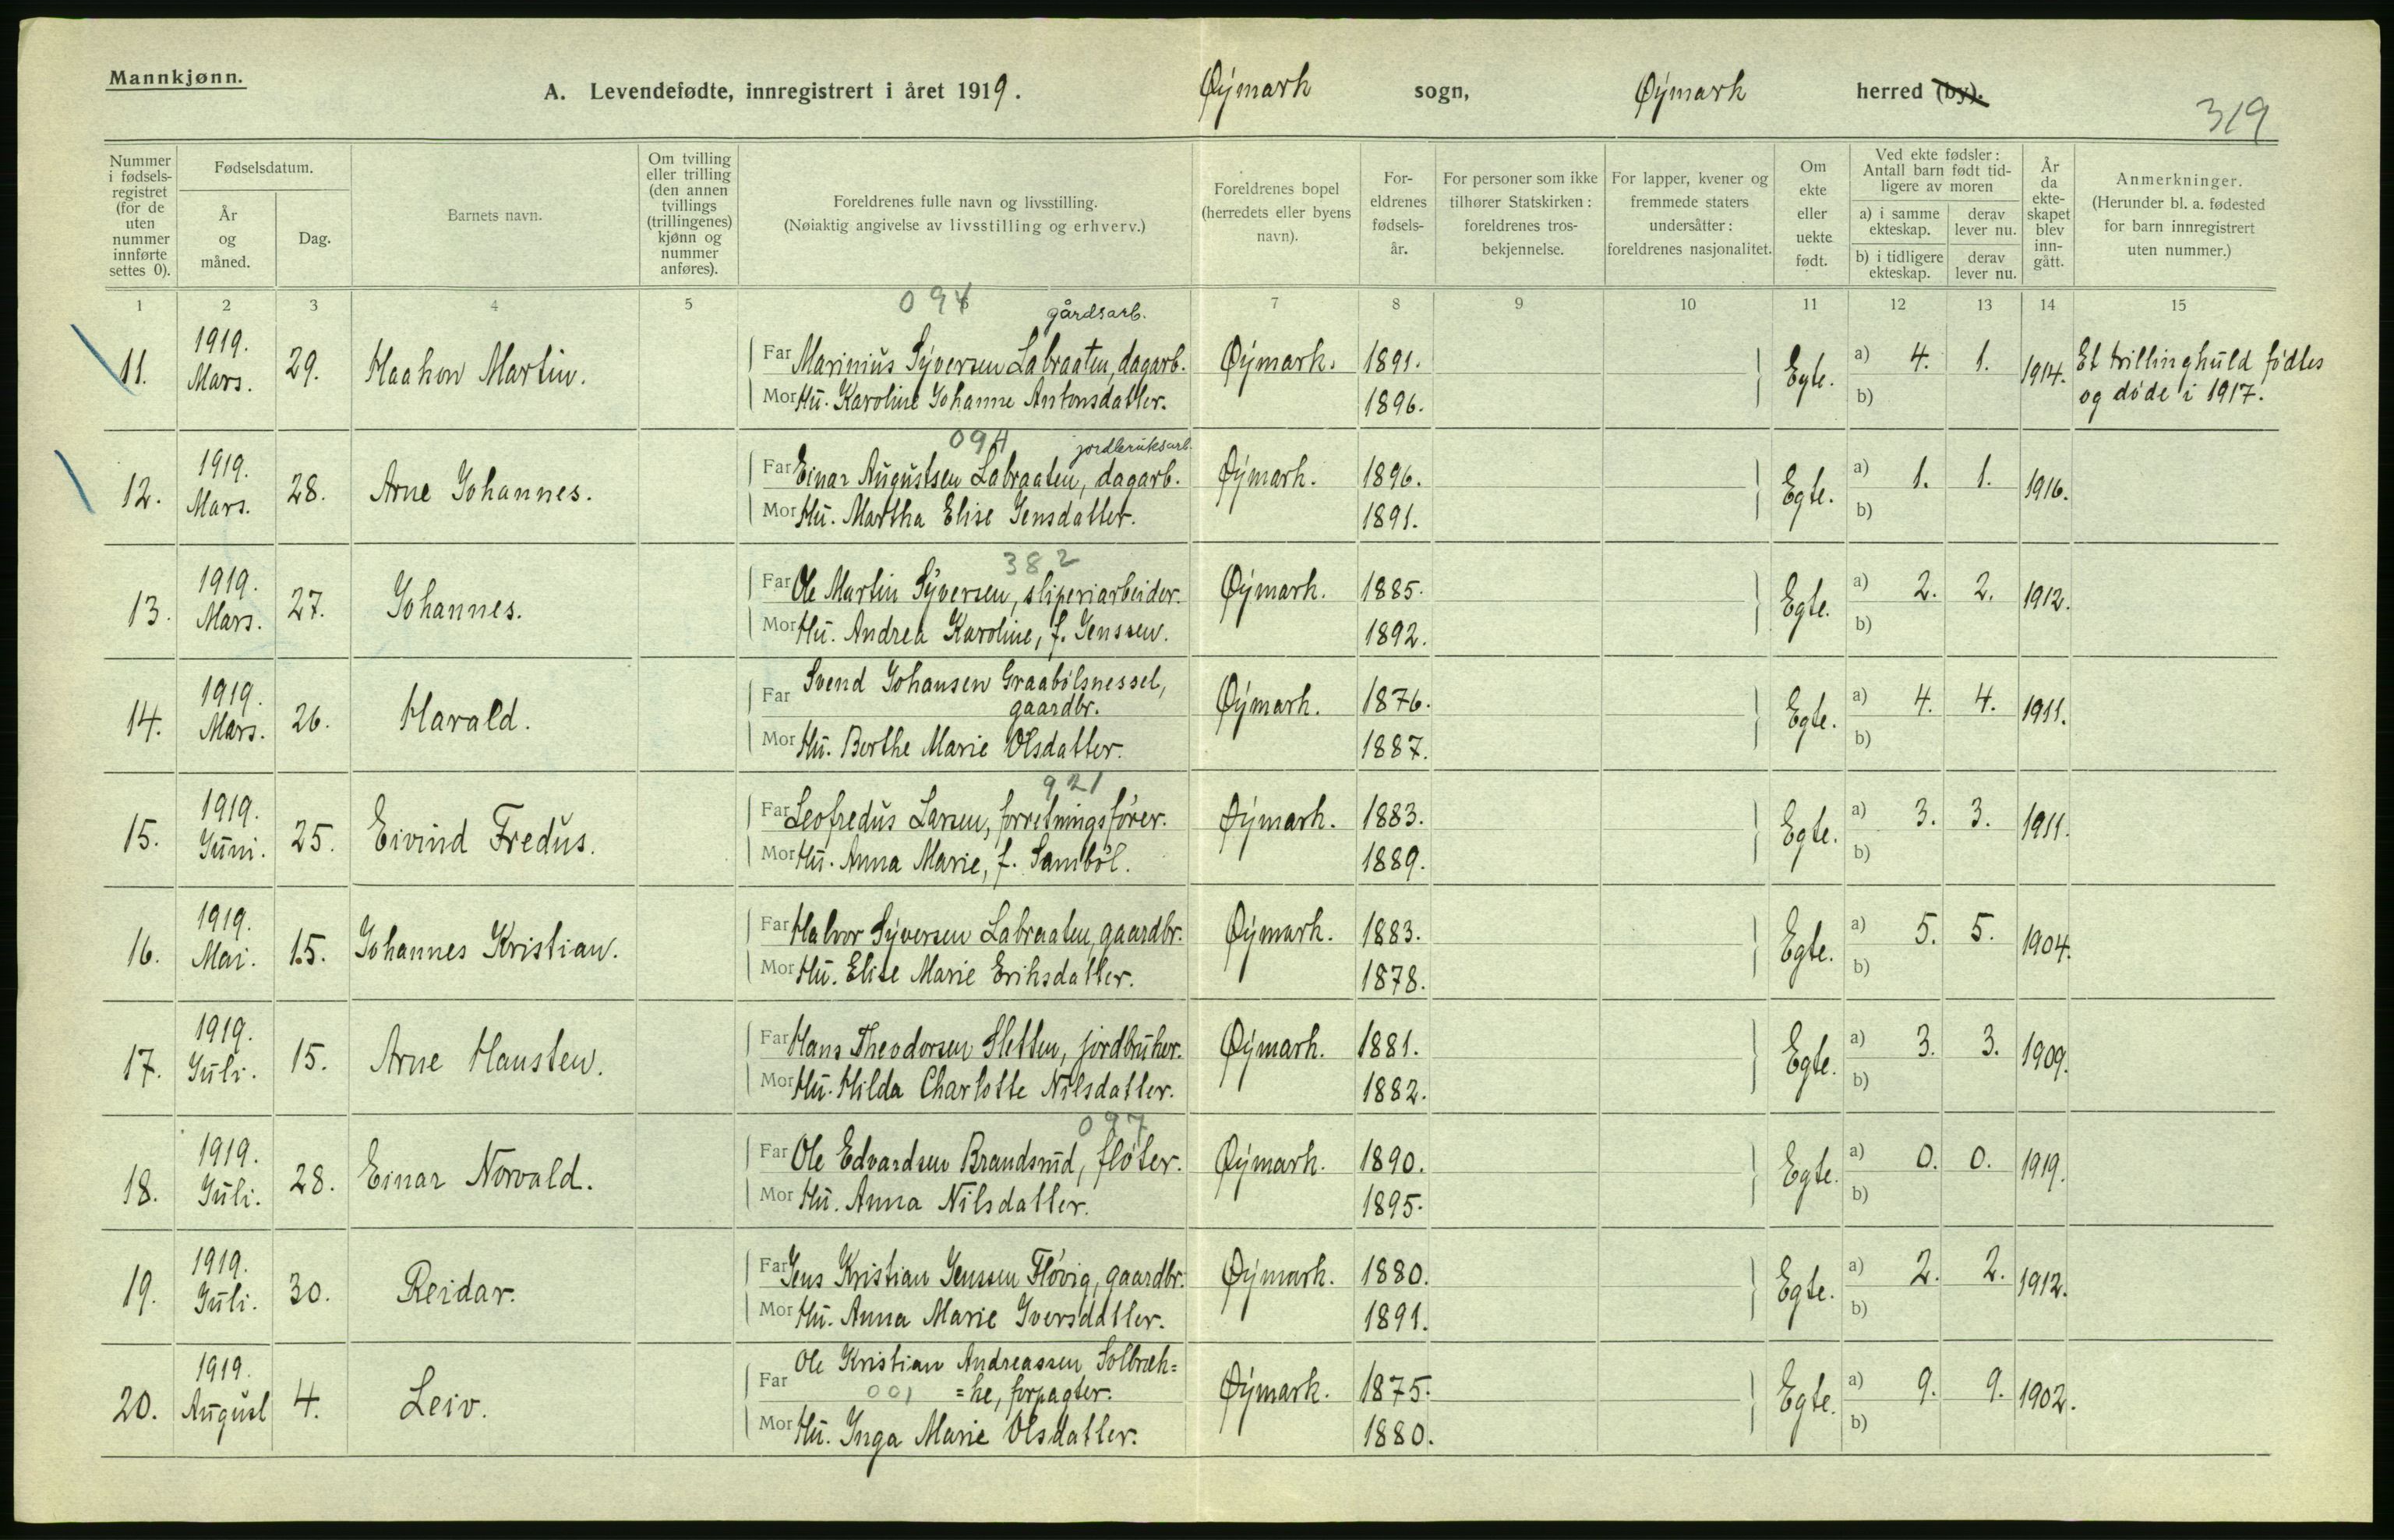 Mannkjønn.
A. Levendefødte, innregistrert i året 1919. Øymark sogn, Øymark herred (by).
319
Nummer i fødselsregistret (for de uten nummer innførte settes 0).
Fødselsdatum.
År og måned.
Dag.
Barnets navn.
Om tvilling eller trilling (den annen tvillings (trillingenes) kjønn og nummer anføres).
Foreldrenes fulle navn og livsstilling.
(Nøiaktig angivelse av livsstilling og erhverv.)
Foreldrenes bopel (herredets eller byens navn).
Foreldrenes fødselsår.
For personer som ikke tilhører Statskirken: foreldrenes trosbekjennelse.
For lapper, kvener og fremmede staters undersåtter: foreldrenes nasjonalitet.
Om ekte eller uekte født.
Ved ekte fødsler: Antall barn født tidligere av moren
a) i samme ekteskap. derav lever nu.
b) i tidligere ekteskap. derav lever nu.
År da ekteskapet blev inngått.
Anmerkninger.
(Herunder bl. a. fødested for barn innregistrert uten nummer.)
1 2 3 4 5 6 7 8 9 10 11 12 13 14 15
094 gårdsarb.
11. 1919. Mars. 29. Haakon Martin. Far Marinius Syversen Labraaten, dagarb. Øymark. 1891. Egte. a) 4. 1. 1914. Et trillingkuld fødtes og døde i 1917.
Mor Hu. Karoline Johanne Antonsdatter. 1896. b)
094 jordbruksarb.
12. 1919. Mars. 28. Arne Johannes. Far Einar Augustsen Labraaten, dagarb. Øymark. 1896. Egte. a) 1. 1. 1916.
Mor Hu. Martha Elise Jensdatter. 1891. b)
382
13. 1919. Mars. 27. Johannes. Far Ole Martin Syversen, sliperiarbeider. Øymark. 1885. Egte. a) 2. 2. 1912.
Mor Hu. Andrea Karoline, f. Jenssen. 1892. b)
14. 1919. Mars. 26. Harald. Far Svend Johansen Graabølsnessel, gaardbr. Øymark. 1876. Egte. a) 4. 4. 1911.
Mor Hu. Berthe Marie Olsdatter. 1887. b)
921
15. 1919. Juni. 25. Eivind Fredus. Far Leofredus Larsen, forretningsfører. Øymark. 1883. Egte. a) 3. 3. 1911.
Mor Hu. Anna Marie, f. Sambøl. 1889. b)
16. 1919. Mai. 15. Johannes Kristian. Far Halvor Syversen Labraaten, gaardbr. Øymark. 1883. Egte. a) 5. 5. 1904.
Mor Hu. Elise Marie Eriksdatter. 1878. b)
17. 1919. Juli. 15. Arne Hansten. Far Hans Theodorsen Sletten, jordbruker. Øymark. 1881. Egte. a) 3. 3. 1909.
Mor Hu. Hilda Charlotte Nilsdatter. 1882. b)
097
18. 1919. Juli. 28. Einar Norvald. Far Ole Edvardsen Brandsrud, fløter. Øymark. 1890. Egte. a) 0. 0. 1919.
Mor Hu. Anna Nilsdatter. 1895. b)
19. 1919. Juli. 30. Reidar. Far Jens Kristian Jenssen Fløvig, gaardbr. Øymark. 1880. Egte. a) 2. 2. 1912.
Mor Hu. Anna Marie Iversdatter. 1891. b)
20. 1919. August 4. Leiv. Far Ole Kristian Andreassen Solbræk= =ke, forpagter. 001 Øymark. 1875. Egte. a) 9. 9. 1902.
Mor Hu. Inga Marie Olsdatter. 1880. b)